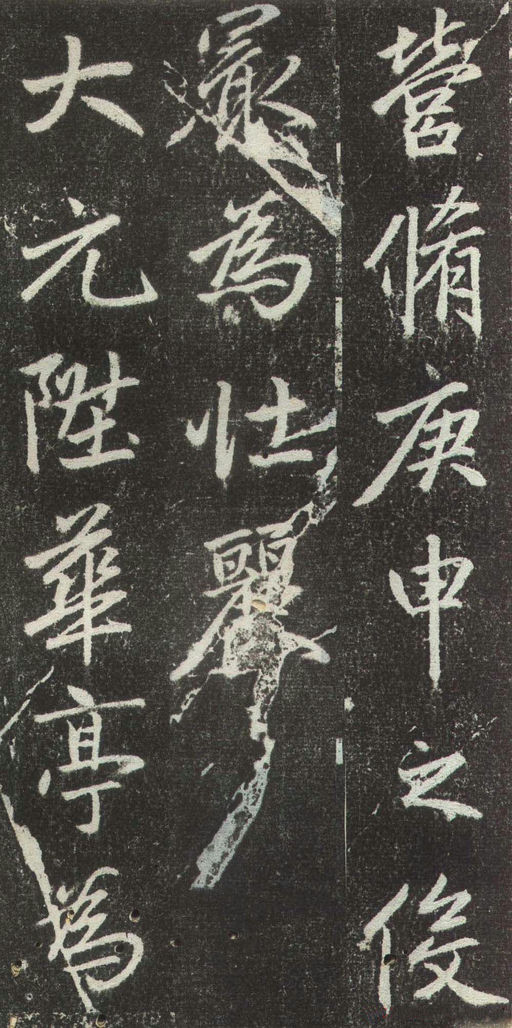 營脩庚申之後
最為壯麗
大元陞華亭為